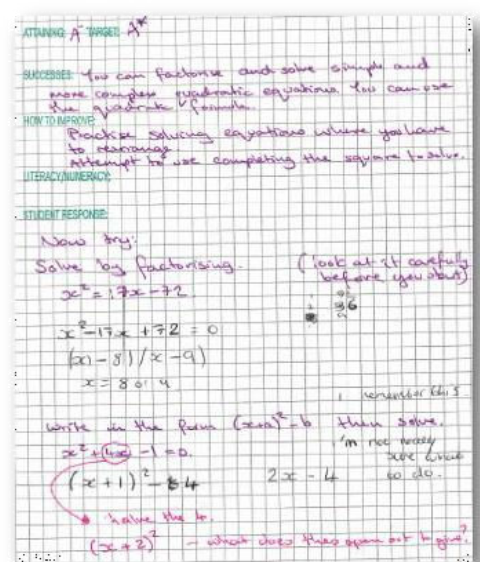 ATTAINING: A⁻ TARGET: A*
SUCCESSES: You can factorise and solve simple and
more complex quadratic equations. You can use
the quadratic formula.
HOW TO IMPROVE:
Practise solving equations where you have
to rearrange
Attempt to use completing the square to solve.
LITERACY/NUMERACY:
STUDENT RESPONSE:
Now try:
Solve by factorising. (look at it carefully
before you start)
x² = 17x - 72
x² - 17x + 72 = 0
(x - 8)(x - 9)
x = 8 or 9
remember this
write in the form (x+a)² - b then solve.
x² + 4x - 1 = 0.
I'm not really
sure what
to do.
(x + 1)² - 4
2x - 4
halve the 4.
(x + 2)² - what does this open out to give?